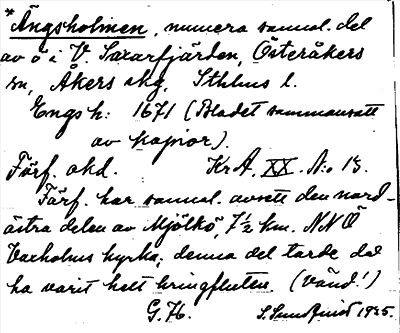 *Ängsholmen, numera sannol. del
av ö i V. Saxarfjärden, Österåkers
sn, Åkers skg, Sthlms l.
Engsh: 1671 (Bladet sammansatt
av kopior).
Förf. okd. Kr A. XX. N:o 13.
Förf. har sannol. avsett den nord-
östra delen av Mjölkö, 7½ km. NNÖ
Vaxholms kyrka; denna del torde då
ha varit helt kringfluten. (Vänd!)
G. 76. S. Sundquist 1935.